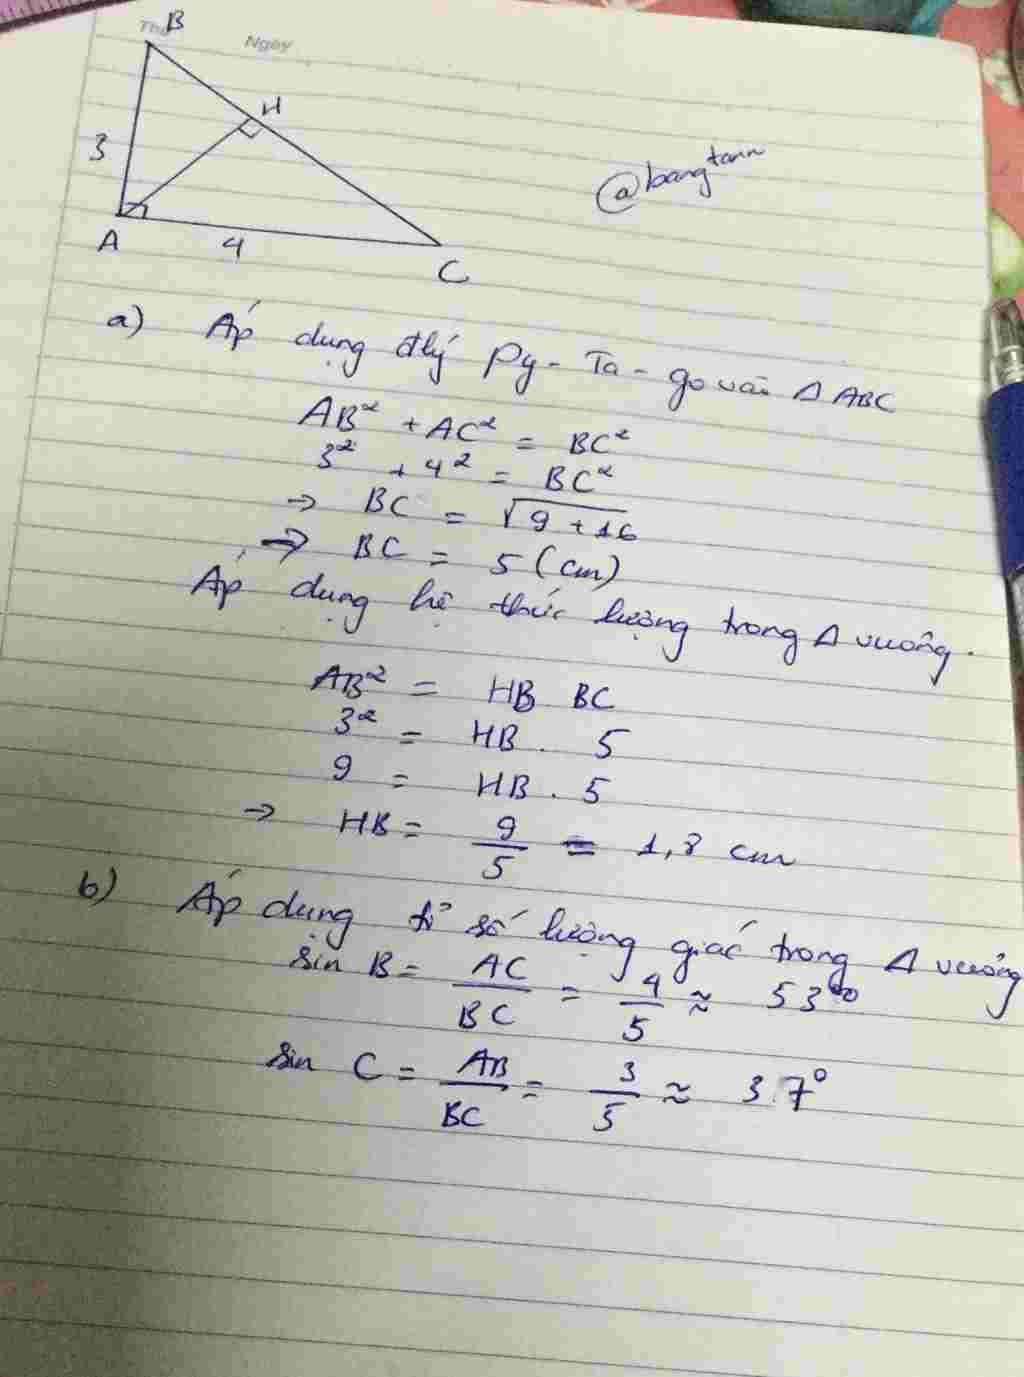 Thứ
B
Ngày
H
3
@bangtann
A
4
C
a) Áp dụng đlý Py-Ta-go vào Δ ABC
AB² + AC² = BC²
3² + 4² = BC²
→ BC = √9+16
→ BC = 5 (cm)
Áp dụng hệ thức lượng trong Δ vuông.
AB² = HB BC
3² = HB . 5
9 = HB . 5
→ HB = 9/5 = 1,8 cm
b) Áp dụng tỉ số lượng giác trong Δ vuông
sin B = AC/BC = 4/5 ≈ 53°
sin C = AB/BC = 3/5 ≈ 37°